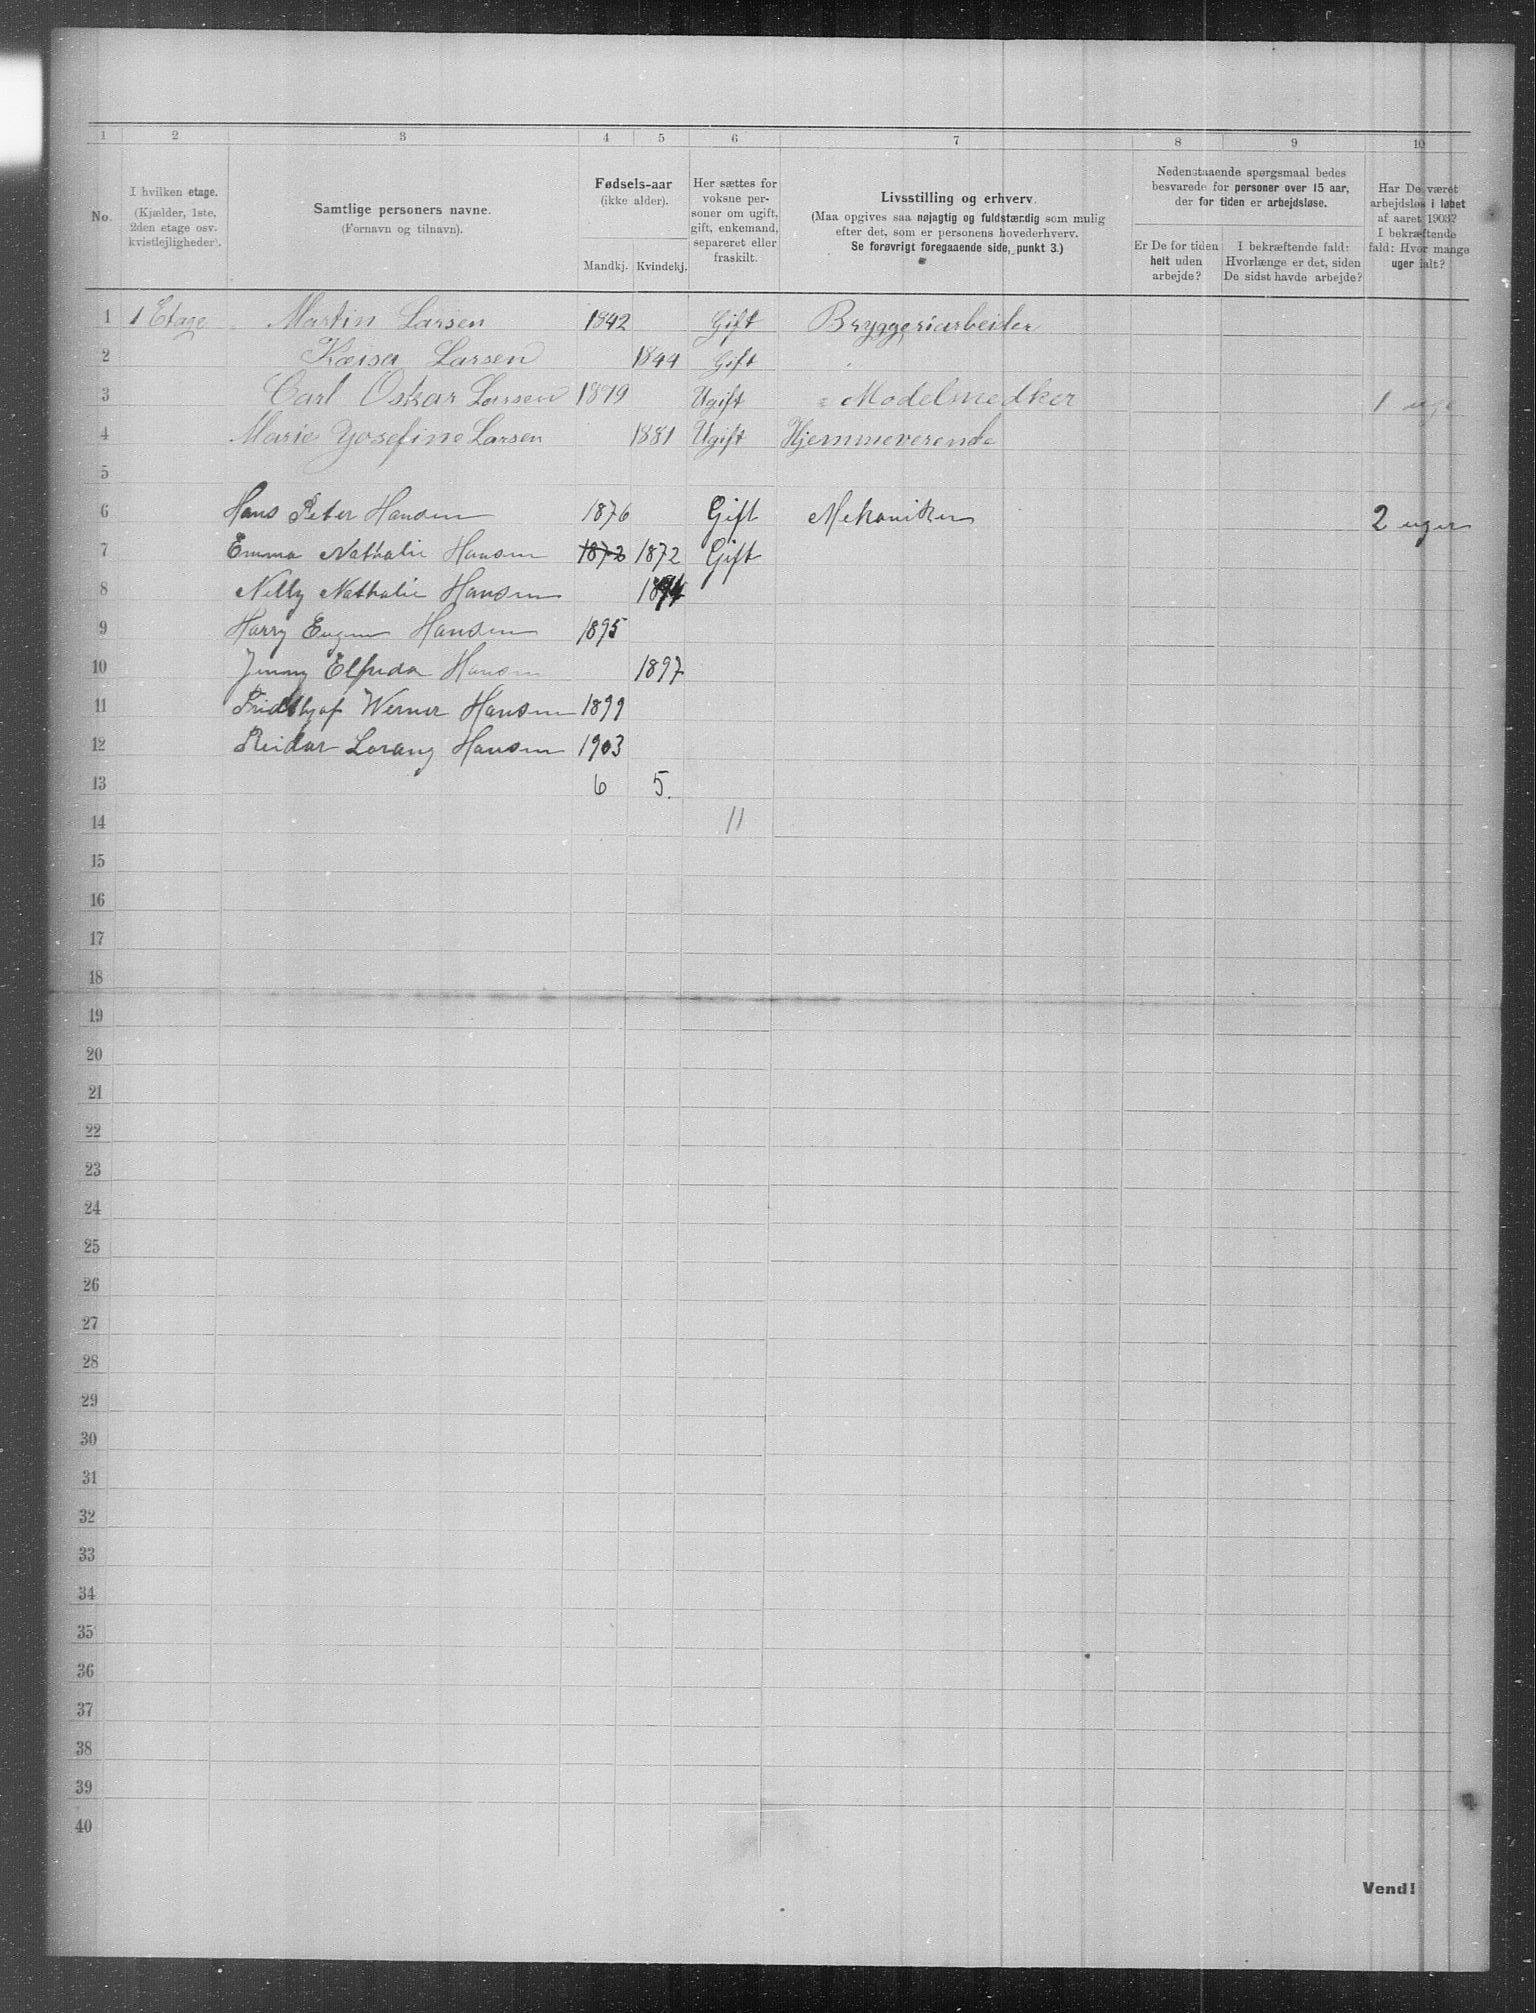 1 2 3 4 5 6 7 8 9 10
No.
I hvilken etage. (Kjælder, 1ste, 2den etage osv. kvistlejligheder).
Samtlige personers navne. (Fornavn og tilnavn).
Fødsels-aar (ikke alder).
Mandkj. Kvindekj.
Her sættes for voksne personer om ugift, gift, enkemand, separeret eller fraskilt.
Livsstilling og erhverv. (Maa opgives saa nøjagtig og fuldstændig som mulig efter det, som er personens hovederhverv. Se forøvrigt foregaaende side, punkt 3.)
Nedenstaaende spørgsmaal bedes besvarede for personer over 15 aar, der for tiden er arbejdsløse.
Er De for tiden helt uden arbejde?
I bekræftende fald: Hvorlænge er det, siden De sidst havde arbejde?
Har De været arbejdsløs i løbet af aaret 1903? I bekræftende fald: Hvor mange uger ialt?
1 1 Etage Martin Larsen 1842 Gift Bryggeriarbeider
2 Kaisa Larsen 1844 Gift
3 Carl Oskar Larsen 1879 Ugift Modelsnedker 1 uge
4 Marie Josefine Larsen 1881 Ugift Hjemmeverende
5
6 Hans Peter Hansen 1876 Gift Mekaniker 2 uger
7 Emma Nathalie Hansen 1872 1872 Gift
8 Nelly Nathalie Hansen 1894
9 Harry Eugen Hansen 1895
10 Jenny Elfrida Hansen 1897
11 Fridthjof Werner Hansen 1899
12 Reidar Lorang Hansen 1903
13 6 5.
14 11
15
16
17
18
19
20
21
22
23
24
25
26
27
28
29
30
31
32
33
34
35
36
37
38
39
40
Vend!